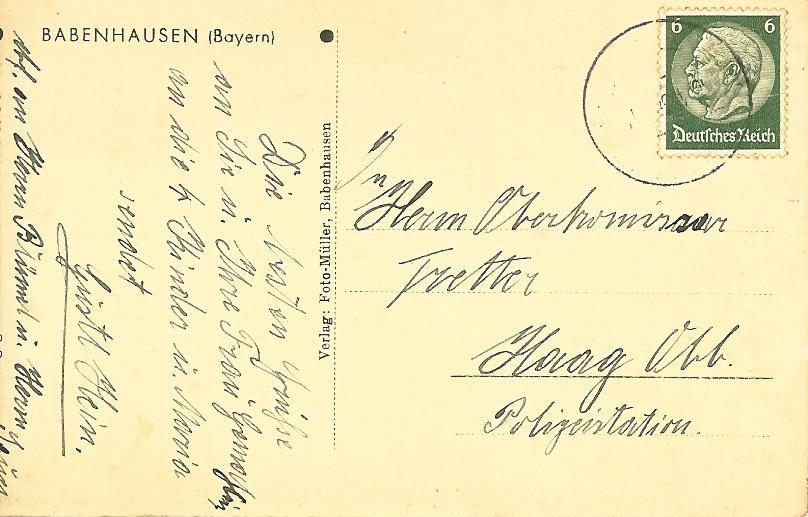 BABENHAUSEN (Bayern)
Die besten Grüße
an Sie u. Ihre Frau Gemahlin,
an die 4 Kinder u. Maria
sendet
Gustl Hein.
an Herrn Blümel u. Herrn
Verlag: Foto-Müller, Babenhausen
6 6
Deutsches Reich
An
Herrn Oberkomissar
Tretter
Haag Obb.
Polizeistation.